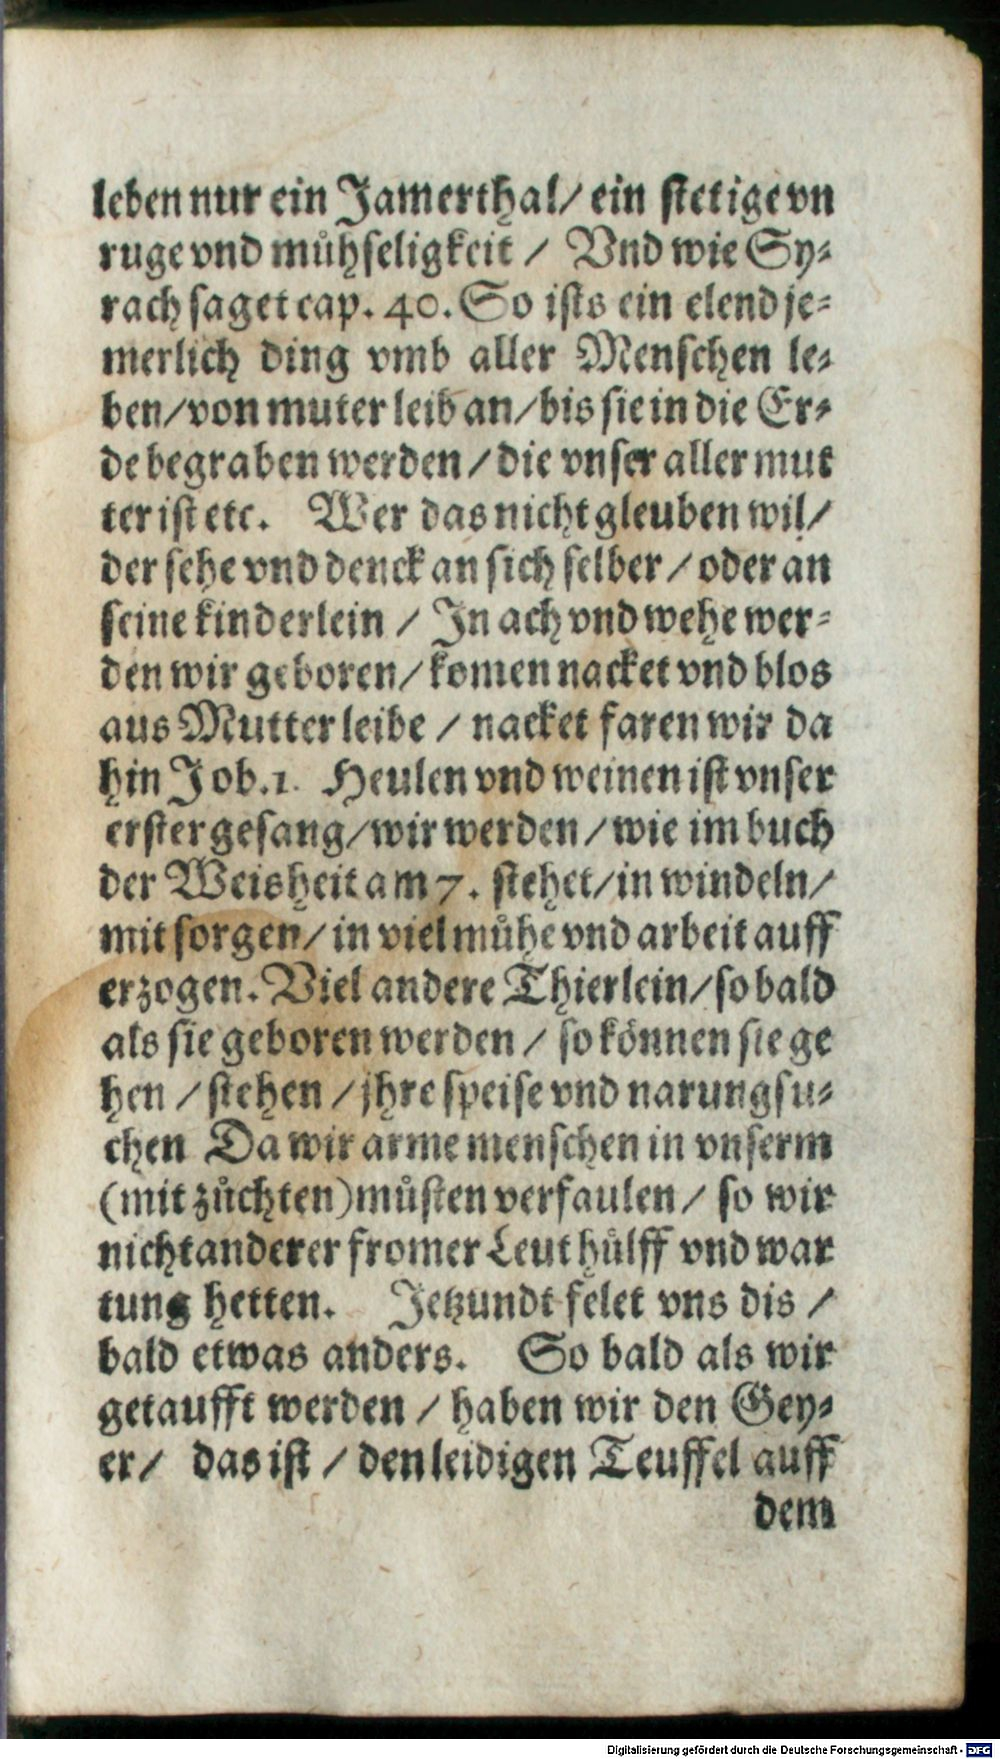 leben nur ein Jamerthal/ ein stetige vn
ruge vnd můhseligkeit / Vnd wie Sy-
rach saget cap. 40. So ists ein elend je-
merlich ding vmb aller Menschen le-
ben/ von muter leib an/ bis sie in die Er-
de begraben werden / die vnser aller mut
ter ist etc. Wer das nicht gleuben wil/
der sehe vnd denck an sich selber / oder an
seine kinderlein / In ach vnd wehe wer-
den wir geboren/ komen nacket vnd blos
aus Mutter leibe / nacket faren wir da
hin Job.1. Heulen vnd weinen ist vnser
erster gesang/ wir werden / wie im buch
der Weisheit am 7. stehet/ in windeln/
mit sorgen/ in viel můhe vnd arbeit auff
erzogen. Viel andere Thierlein/ so bald
als sie geboren werden / so können sie ge
hen / stehen / jhre speise vnd narung su-
chen Da wir arme menschen in vnserm
(mit zůchten) můsten verfaulen/ so wir
nicht anderer fromer Leut hůlff vnd war
tung hetten. Jetzundt felet vns dis /
bald etwas anders. So bald als wir
getaufft werden / haben wir den Gey-
er/ das ist / den leidigen Teuffel auff
dem
Digitalisierung gefördert durch die Deutsche Forschungsgemeinschaft - DFG